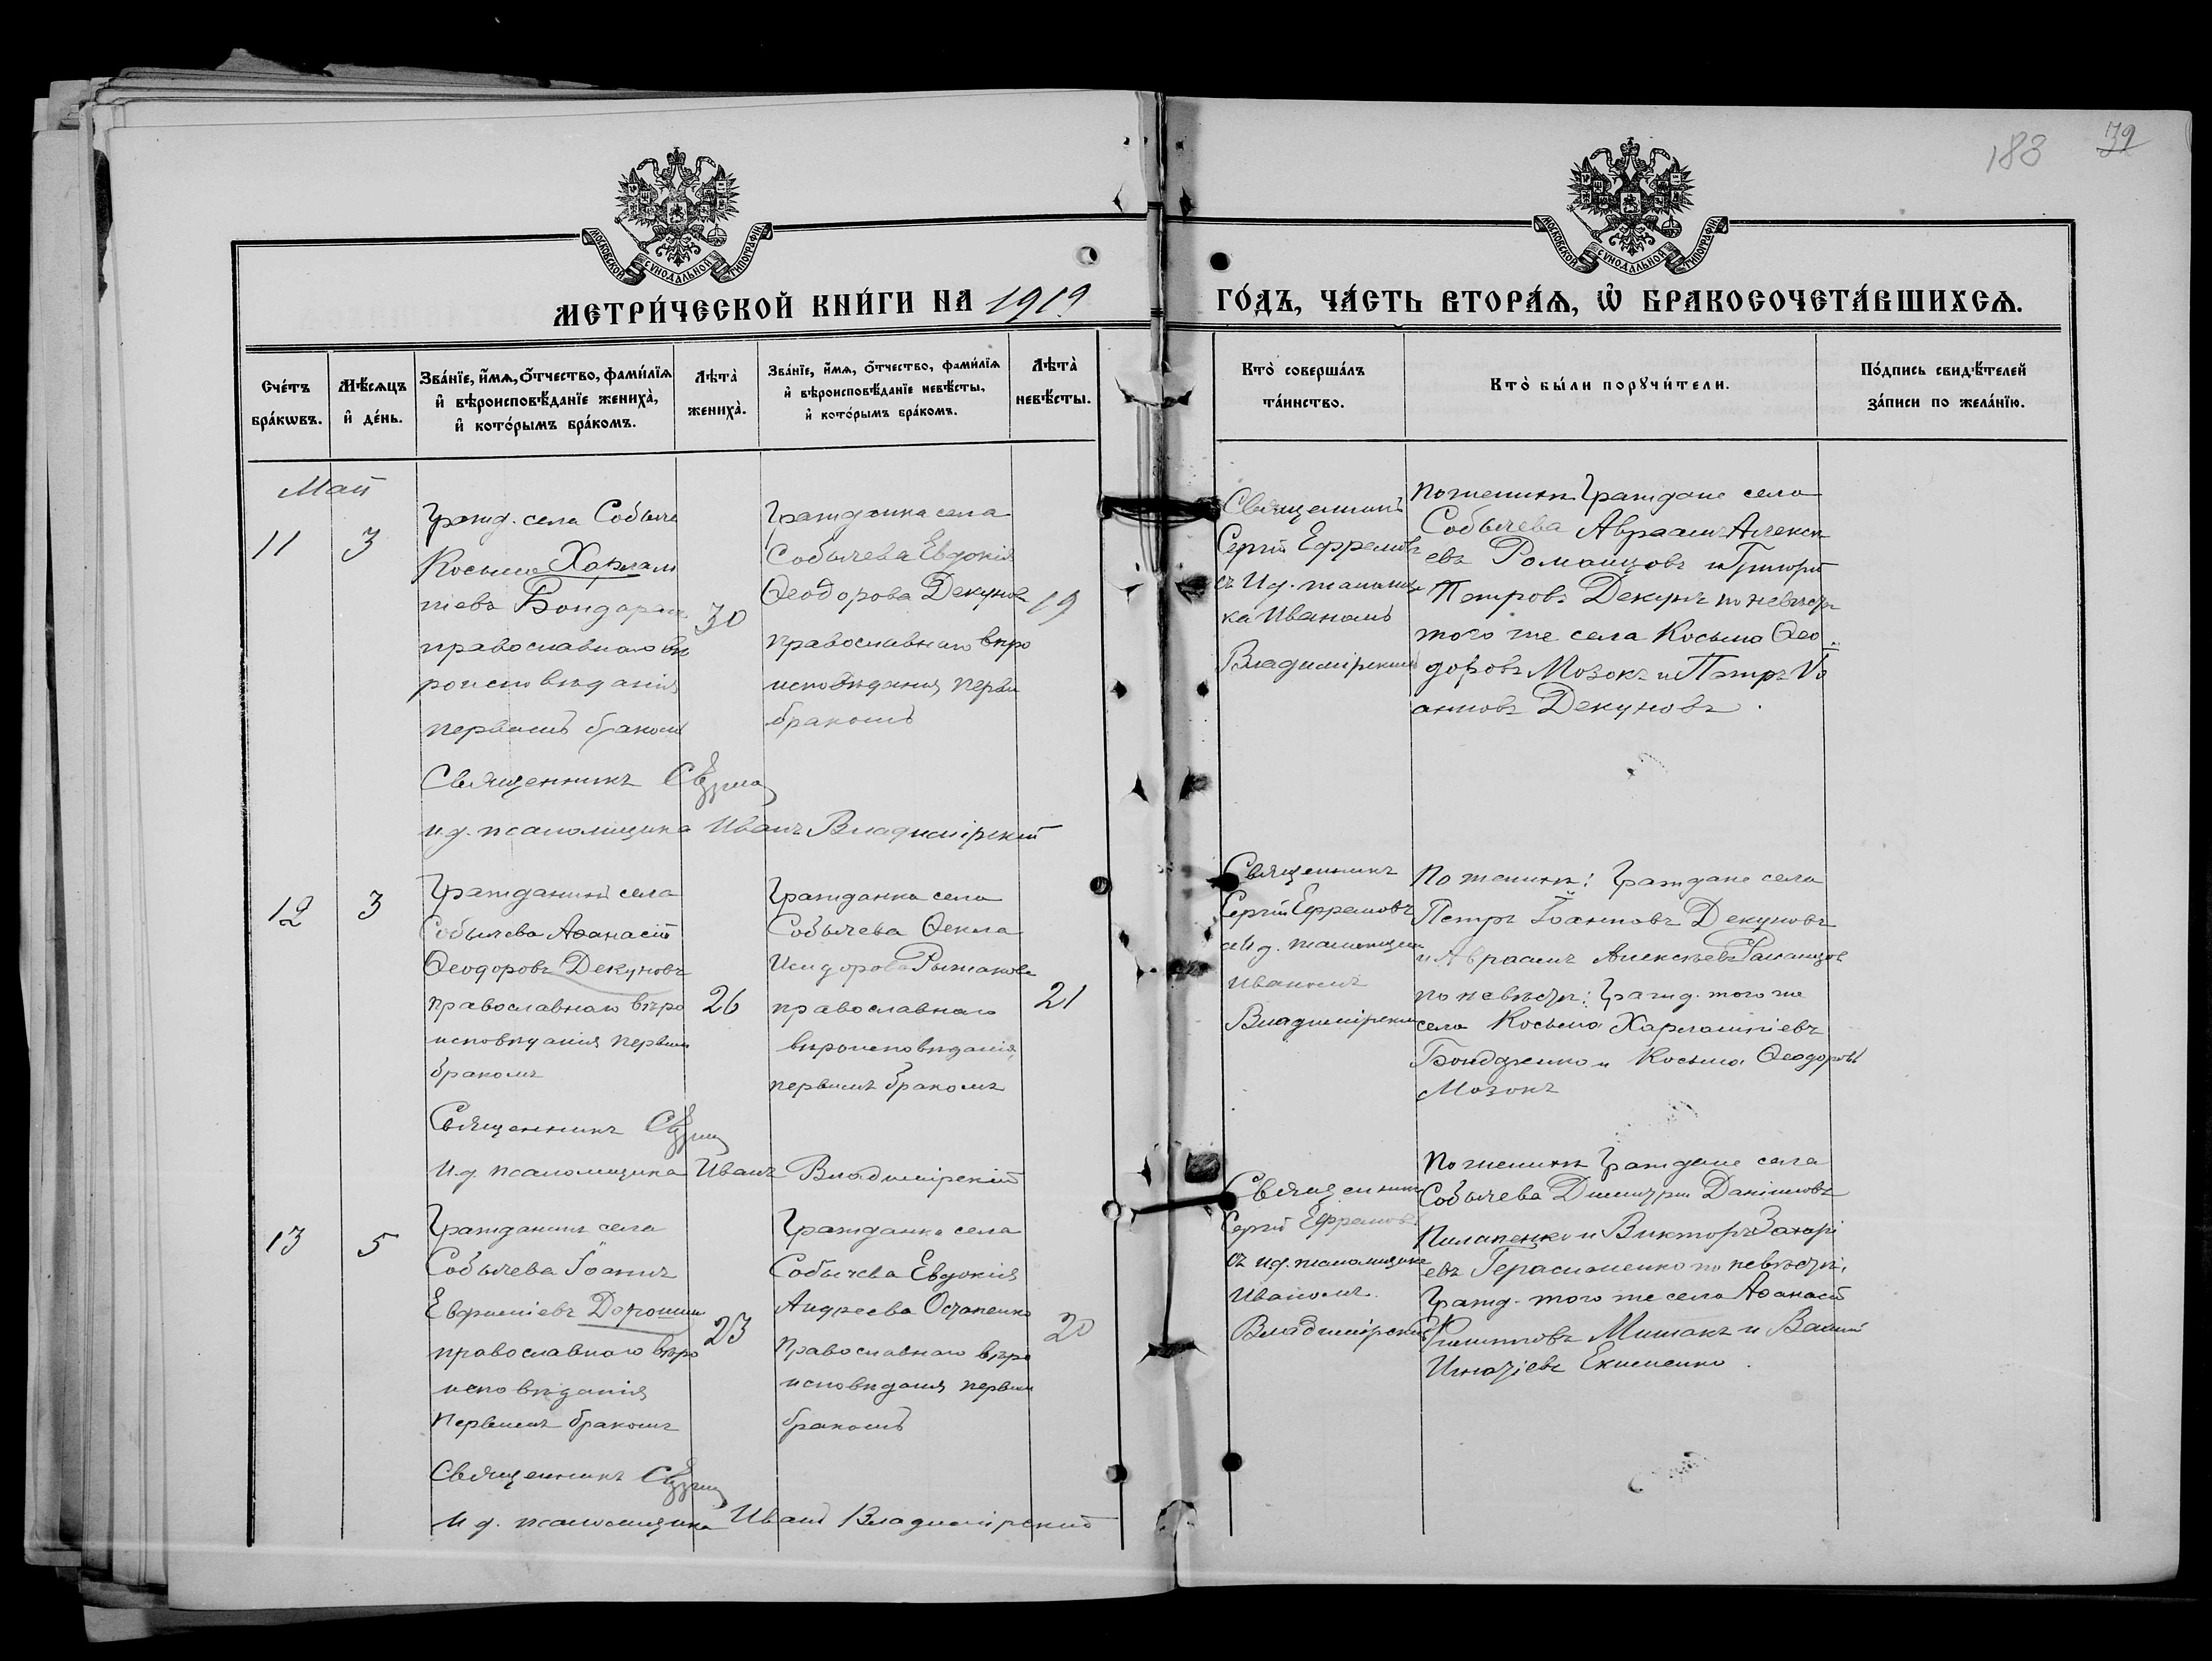 188 32
МОСКОВСКОЙ СѴНОДАЛЬНОЙ ТИПОГРАФІИ
МОСКОВСКОЙ СѴНОДАЛЬНОЙ ТИПОГРАФІИ
МЕТРИ́ЧЕСКОЙ КНИ́ГИ НА 1919
ГО́ДЪ, ЧА́СТЬ ВТОРА́Ѧ, Ѽ БРАКОСОЧЕТА́ВШИХСѦ.
Сче́тъ бра́кѡвъ.
Мѣ́сѧцъ и҆ де́нь.
Зва́нїе, и҆́мѧ, ѻ҆́тчество, фами́лїѧ
и҆ вѣроисповѣ́данїе жениха̀,
и҆ кото́рымъ бра́комъ.
Лѣта̀ жениха̀.
Зва́нїе, и҆́мѧ, ѻ҆́тчество, фами́лїѧ
и҆ вѣроисповѣ́данїе невѣ́сты,
и҆ кото́рымъ бра́комъ.
Лѣта̀ невѣ́сты.
Кто̀ соверша́лъ та́инство.
Кто̀ бы́ли порꙋчи́тели.
По́дпись свидѣ́телей за́писи по жела́нїю.
Май
11 3
Гражд. села Собыче
Косьма Харлам
піевъ Бондарен
православнаго вѣ
роисповѣданія
первымъ бракомъ
30
Гражданка села
Собычева Евдокія
Ѳеодорова Декунова
православнаго вѣро
исповѣданія первы
бракомъ
19
Священникъ
Сергій Ефремовъ
съ И. д. псаломщи
ка Иваномъ
Владимірскимъ
По женихѣ Граждане села
Собычева Авраамъ Алексѣ
евъ Романцовъ и Григорій
Петровъ Декунъ по невѣстѣ
того же села Косьма Ѳео
доровъ Мозокъ и Петръ Іо
анновъ Декуновъ.
Священникъ
и. д. псаломщика Иванъ Владимірскій
12 3
Гражданинъ села
Собычева Аѳанасій
Ѳеодоровъ Декуновъ
православнаго вѣро
исповѣданія первымъ
бракомъ
26
Гражданка села
Собычева Ѳекла
Исидорова Рыжакова
православнаго
вѣроисповѣданія,
первымъ бракомъ
21
Священникъ
Сергій Ефремовъ
съ И. д. псаломщик
Иваномъ
Владимірским
По женихѣ: Граждане села
Петръ Іоанновъ Декуновъ
и Авраамъ Алексѣевъ Романцов
по невѣстѣ: Гражд. того же
села Косьма Харлампіевъ
Бондаренко и Косьма Ѳеодоровъ
Мозокъ
Священникъ
И. д. псаломщика Иванъ Владимірскій
13 5
Гражданинъ села
Собычева Іоаннъ
Евфиміевъ Дорошен
православнаго вѣро
исповѣданія
первымъ бракомъ
23
Гражданка села
Собычева Евдокія
Андреева Остапенко
Православнаго вѣро
исповѣданія первым
бракомъ
20
Священникъ
Сергій Ефремовъ
съ и. д. псаломщика
Иваномъ
Владимірскимъ
По женихѣ Граждане села
Собычева Димитрій Даніиловъ
Пилипенко и Викторъ Захарі
евъ Герасименко по невѣстѣ:
Гражд. того же села Аѳанасій
Филипповъ Мишакъ и Василій
Игнатіевъ Екименко.
Священникъ
И. д. псаломщика Иванъ Владимірскій